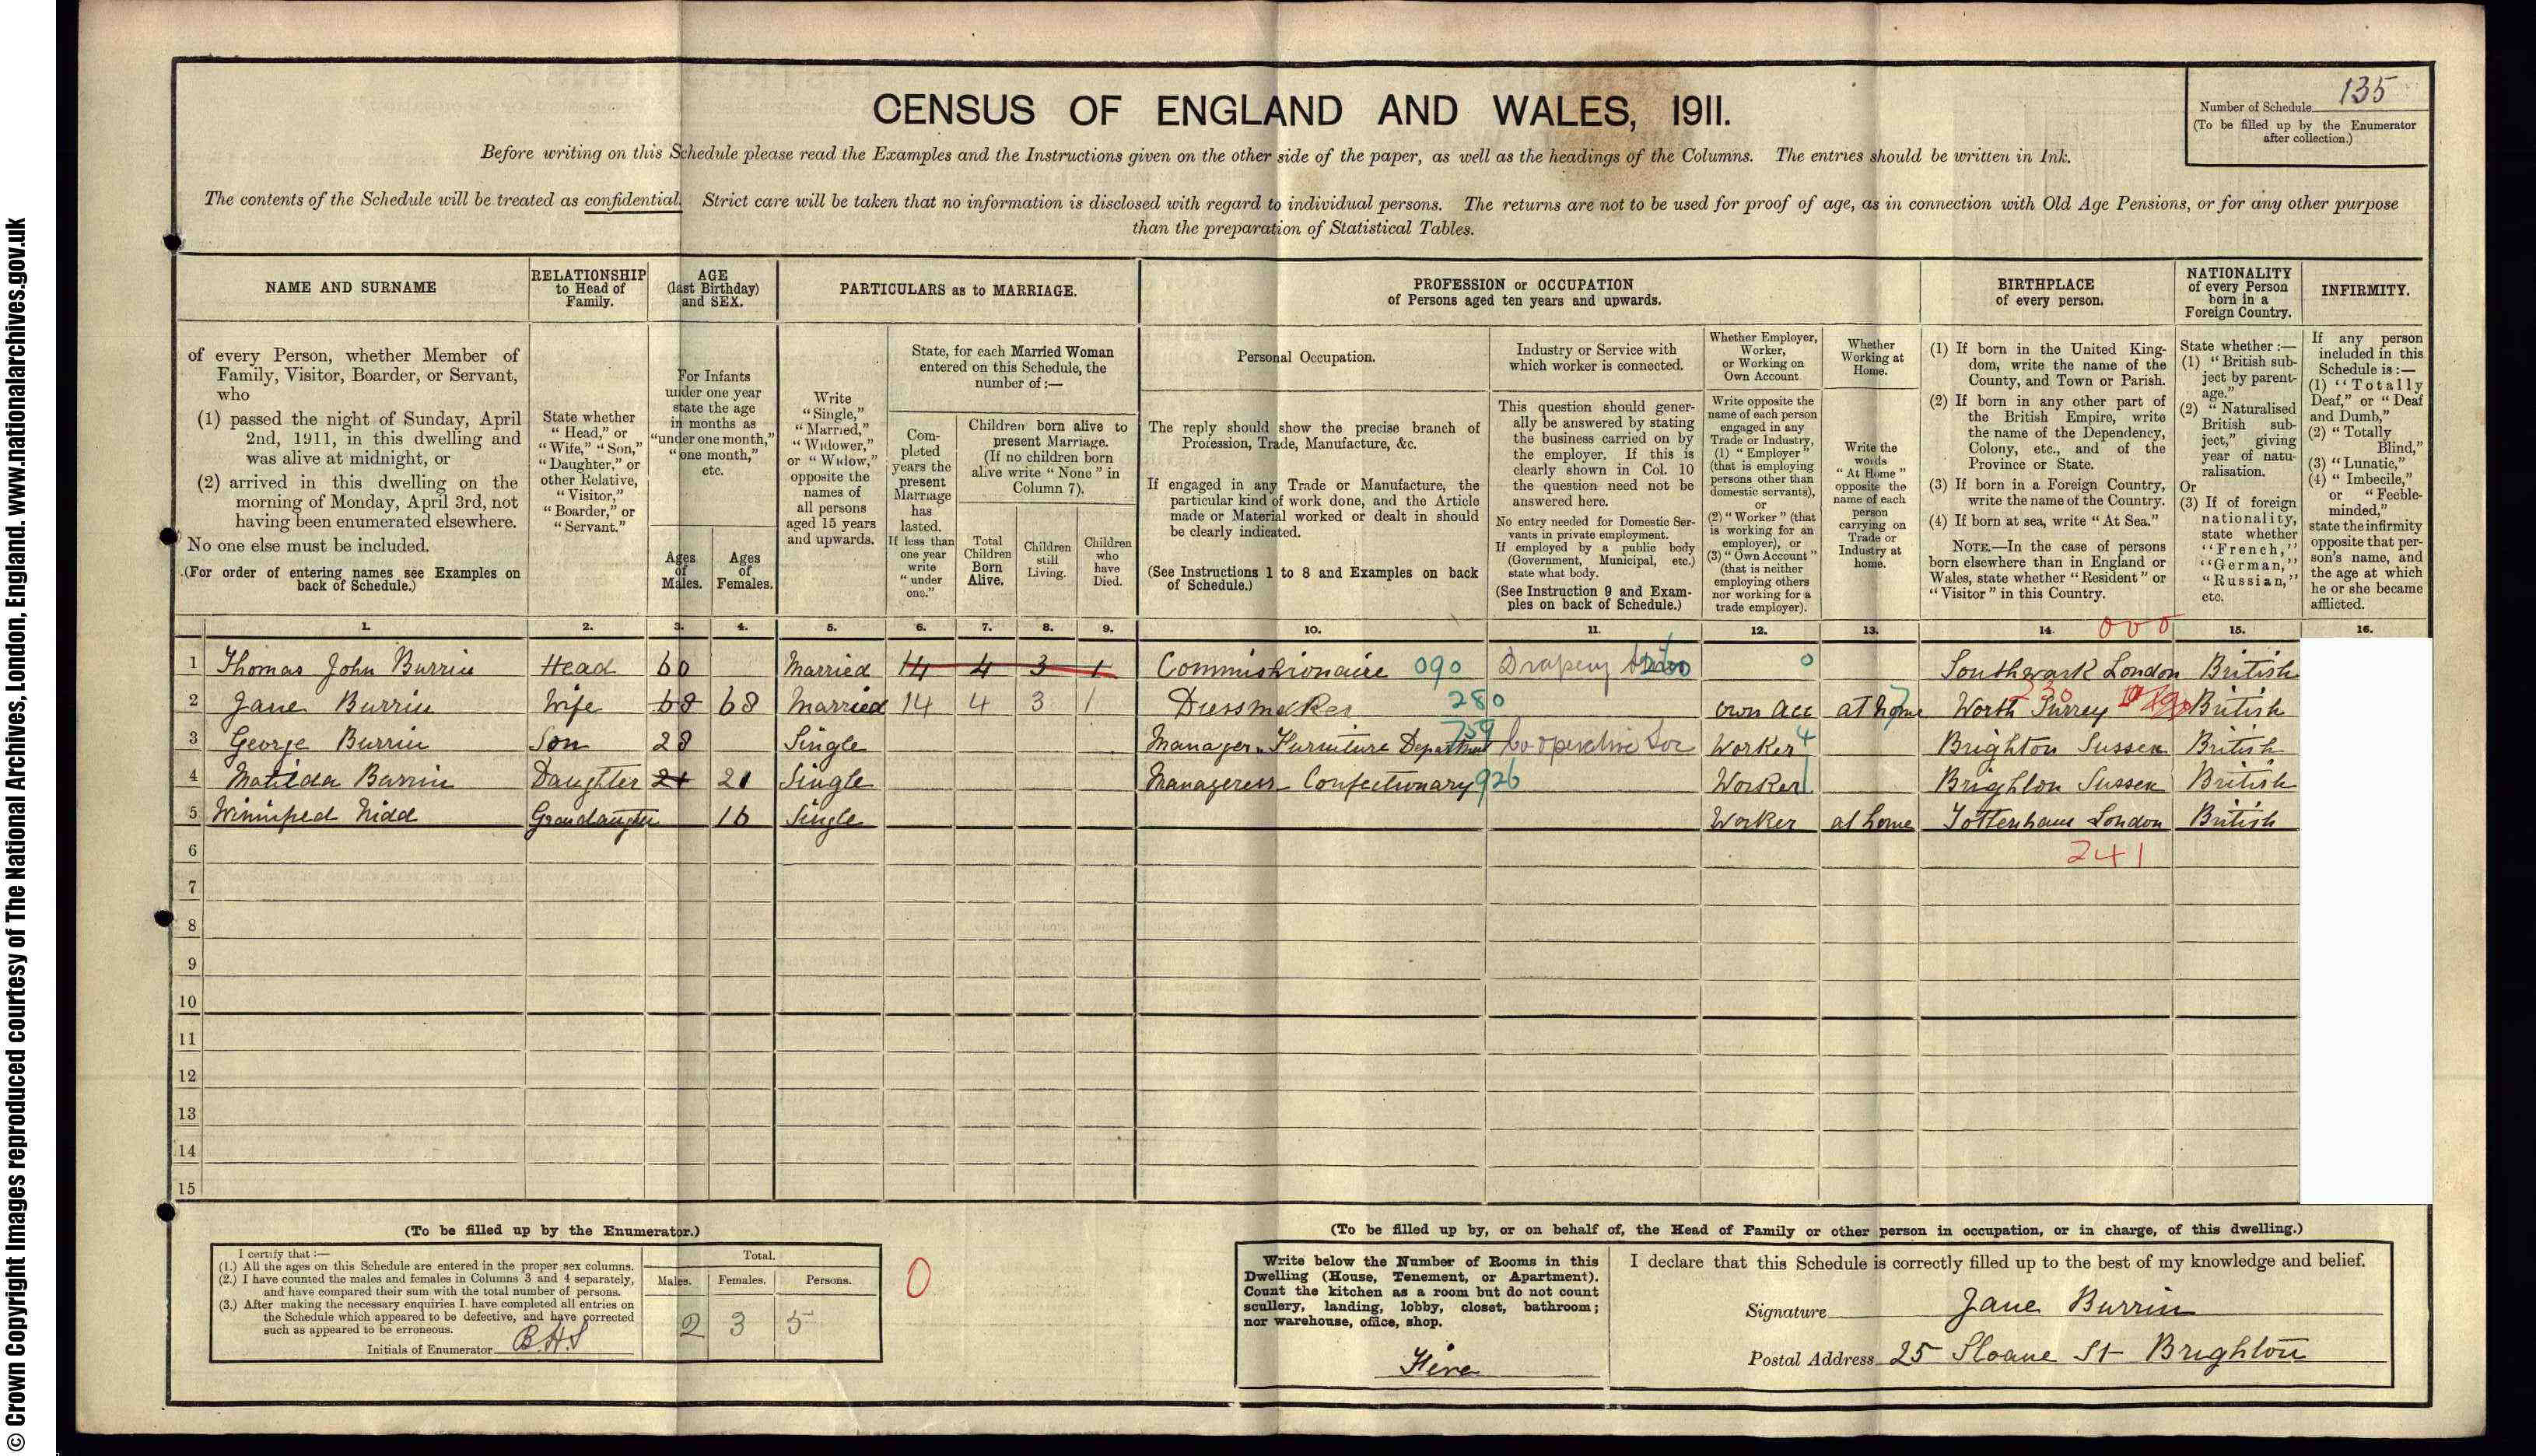 © Crown Copyright Images reproduced courtesy of The National Archives, London, England. www.nationalarchives.gov.uk
CENSUS OF ENGLAND AND WALES, 1911.
Number of Schedule 135
(To be filled up by the Enumerator after collection.)
Before writing on this Schedule please read the Examples and the Instructions given on the other side of the paper, as well as the headings of the Columns. The entries should be written in Ink.
The contents of the Schedule will be treated as confidential. Strict care will be taken that no information is disclosed with regard to individual persons. The returns are not to be used for proof of age, as in connection with Old Age Pensions, or for any other purpose
than the preparation of Statistical Tables.
NAME AND SURNAME
of every Person, whether Member of
Family, Visitor, Boarder, or Servant,
who
(1) passed the night of Sunday, April
2nd, 1911, in this dwelling and
was alive at midnight, or
(2) arrived in this dwelling on the
morning of Monday, April 3rd, not
having been enumerated elsewhere.
No one else must be included.
(For order of entering names see Examples on
back of Schedule.)
RELATIONSHIP
to Head of
Family.
State whether
"Head," or
"Wife," "Son,"
"Daughter," or
other Relative,
"Visitor,"
"Boarder," or
"Servant."
AGE
(last Birthday)
and SEX.
For Infants
under one year
state the age
in months as
"under one month,"
"one month,"
etc.
Ages
of
Males.
Ages
of
Females.
PARTICULARS as to MARRIAGE.
Write
"Single,"
"Married,"
"Widower,"
or "Widow,"
opposite the
names of
all persons
aged 15 years
and upwards.
State, for each Married Woman
entered on this Schedule, the
number of:—
Com-
pleted
years the
present
Marriage
has
lasted.
If less than
one year
write
"under
one."
Children born alive to
present Marriage.
(If no children born
alive write "None" in
Column 7).
Total
Children
Born
Alive.
Children
still
Living.
Children
who
have
Died.
PROFESSION or OCCUPATION
of Persons aged ten years and upwards.
Personal Occupation.
The reply should show the precise branch of
Profession, Trade, Manufacture, &c.
If engaged in any Trade or Manufacture, the
particular kind of work done, and the Article
made or Material worked or dealt in should
be clearly indicated.
(See Instructions 1 to 8 and Examples on back
of Schedule.)
Industry or Service with
which worker is connected.
This question should gener-
ally be answered by stating
the business carried on by
the employer. If this is
clearly shown in Col. 10
the question need not be
answered here.
No entry needed for Domestic Ser-
vants in private employment.
If employed by a public body
(Government, Municipal, etc.)
state what body.
(See Instruction 9 and Exam-
ples on back of Schedule.)
Whether Employer,
Worker,
or Working on
Own Account.
Write opposite the
name of each person
engaged in any
Trade or Industry,
(1) "Employer"
(that is employing
persons other than
domestic servants),
or
(2) "Worker" (that
is working for an
employer), or
(3) "Own Account"
(that is neither
employing others
nor working for a
trade employer).
Whether
Working at
Home.
Write the
words
"At Home"
opposite the
name of each
person
carrying on
Trade or
Industry at
home.
BIRTHPLACE
of every person.
(1) If born in the United King-
dom, write the name of the
County, and Town or Parish.
(2) If born in any other part of
the British Empire, write
the name of the Dependency,
Colony, etc., and of the
Province or State.
(3) If born in a Foreign Country,
write the name of the Country.
(4) If born at sea, write "At Sea."
NOTE.—In the case of persons
born elsewhere than in England or
Wales, state whether "Resident" or
"Visitor" in this Country.
NATIONALITY
of every Person
born in a
Foreign Country.
State whether:—
(1) "British sub-
ject by parent-
age."
(2) "Naturalised
British sub-
ject," giving
year of natu-
ralisation.
Or
(3) If of foreign
nationality,
state whether
"French,"
"German,"
"Russian,"
etc.
INFIRMITY.
If any person
included in this
Schedule is:—
(1) "Totally
Deaf," or "Deaf
and Dumb,"
(2) "Totally
Blind,"
(3) "Lunatic,"
(4) "Imbecile,"
or "Feeble-
minded,"
state the infirmity
opposite that per-
son's name, and
the age at which
he or she became
afflicted.
1. 2. 3. 4. 5. 6. 7. 8. 9. 10. 11. 12. 13. 14. 000 15. 16.
1 Thomas John Burrin Head 60 Married 14 4 3 1 Commissionaire 090 Drapery 0 Southwark London British
2 Jane Burrin Wife 68 68 Married 14 4 3 1 Dressmaker 280 own acc at home Worth Surrey 230 British
3 George Burrin Son 28 Single Manager Furniture Department 759 Cooperative Soc Worker 4 Brighton Sussex British
4 Matilda Burrin Daughter 21 21 Single Manageress Confectionary 926 Worker Brighton Sussex British
5 Winnifred Nidd Grandaughter 16 Single Worker at home Tottenham London British
6 241
7
8
9
10
11
12
13
14
15
(To be filled up by the Enumerator.)
I certify that:—
(1.) All the ages on this Schedule are entered in the proper sex columns.
(2.) I have counted the males and females in Columns 3 and 4 separately,
and have compared their sum with the total number of persons.
(3.) After making the necessary enquiries I have completed all entries on
the Schedule which appeared to be defective, and have corrected
such as appeared to be erroneous.
Initials of Enumerator B.H.S
Total.
Males. Females. Persons.
2 3 5
0
(To be filled up by, or on behalf of, the Head of Family or other person in occupation, or in charge, of this dwelling.)
Write below the Number of Rooms in this
Dwelling (House, Tenement, or Apartment).
Count the kitchen as a room but do not count
scullery, landing, lobby, closet, bathroom;
nor warehouse, office, shop.
Five
I declare that this Schedule is correctly filled up to the best of my knowledge and belief.
Signature Jane Burrin
Postal Address 25 Sloane St Brighton